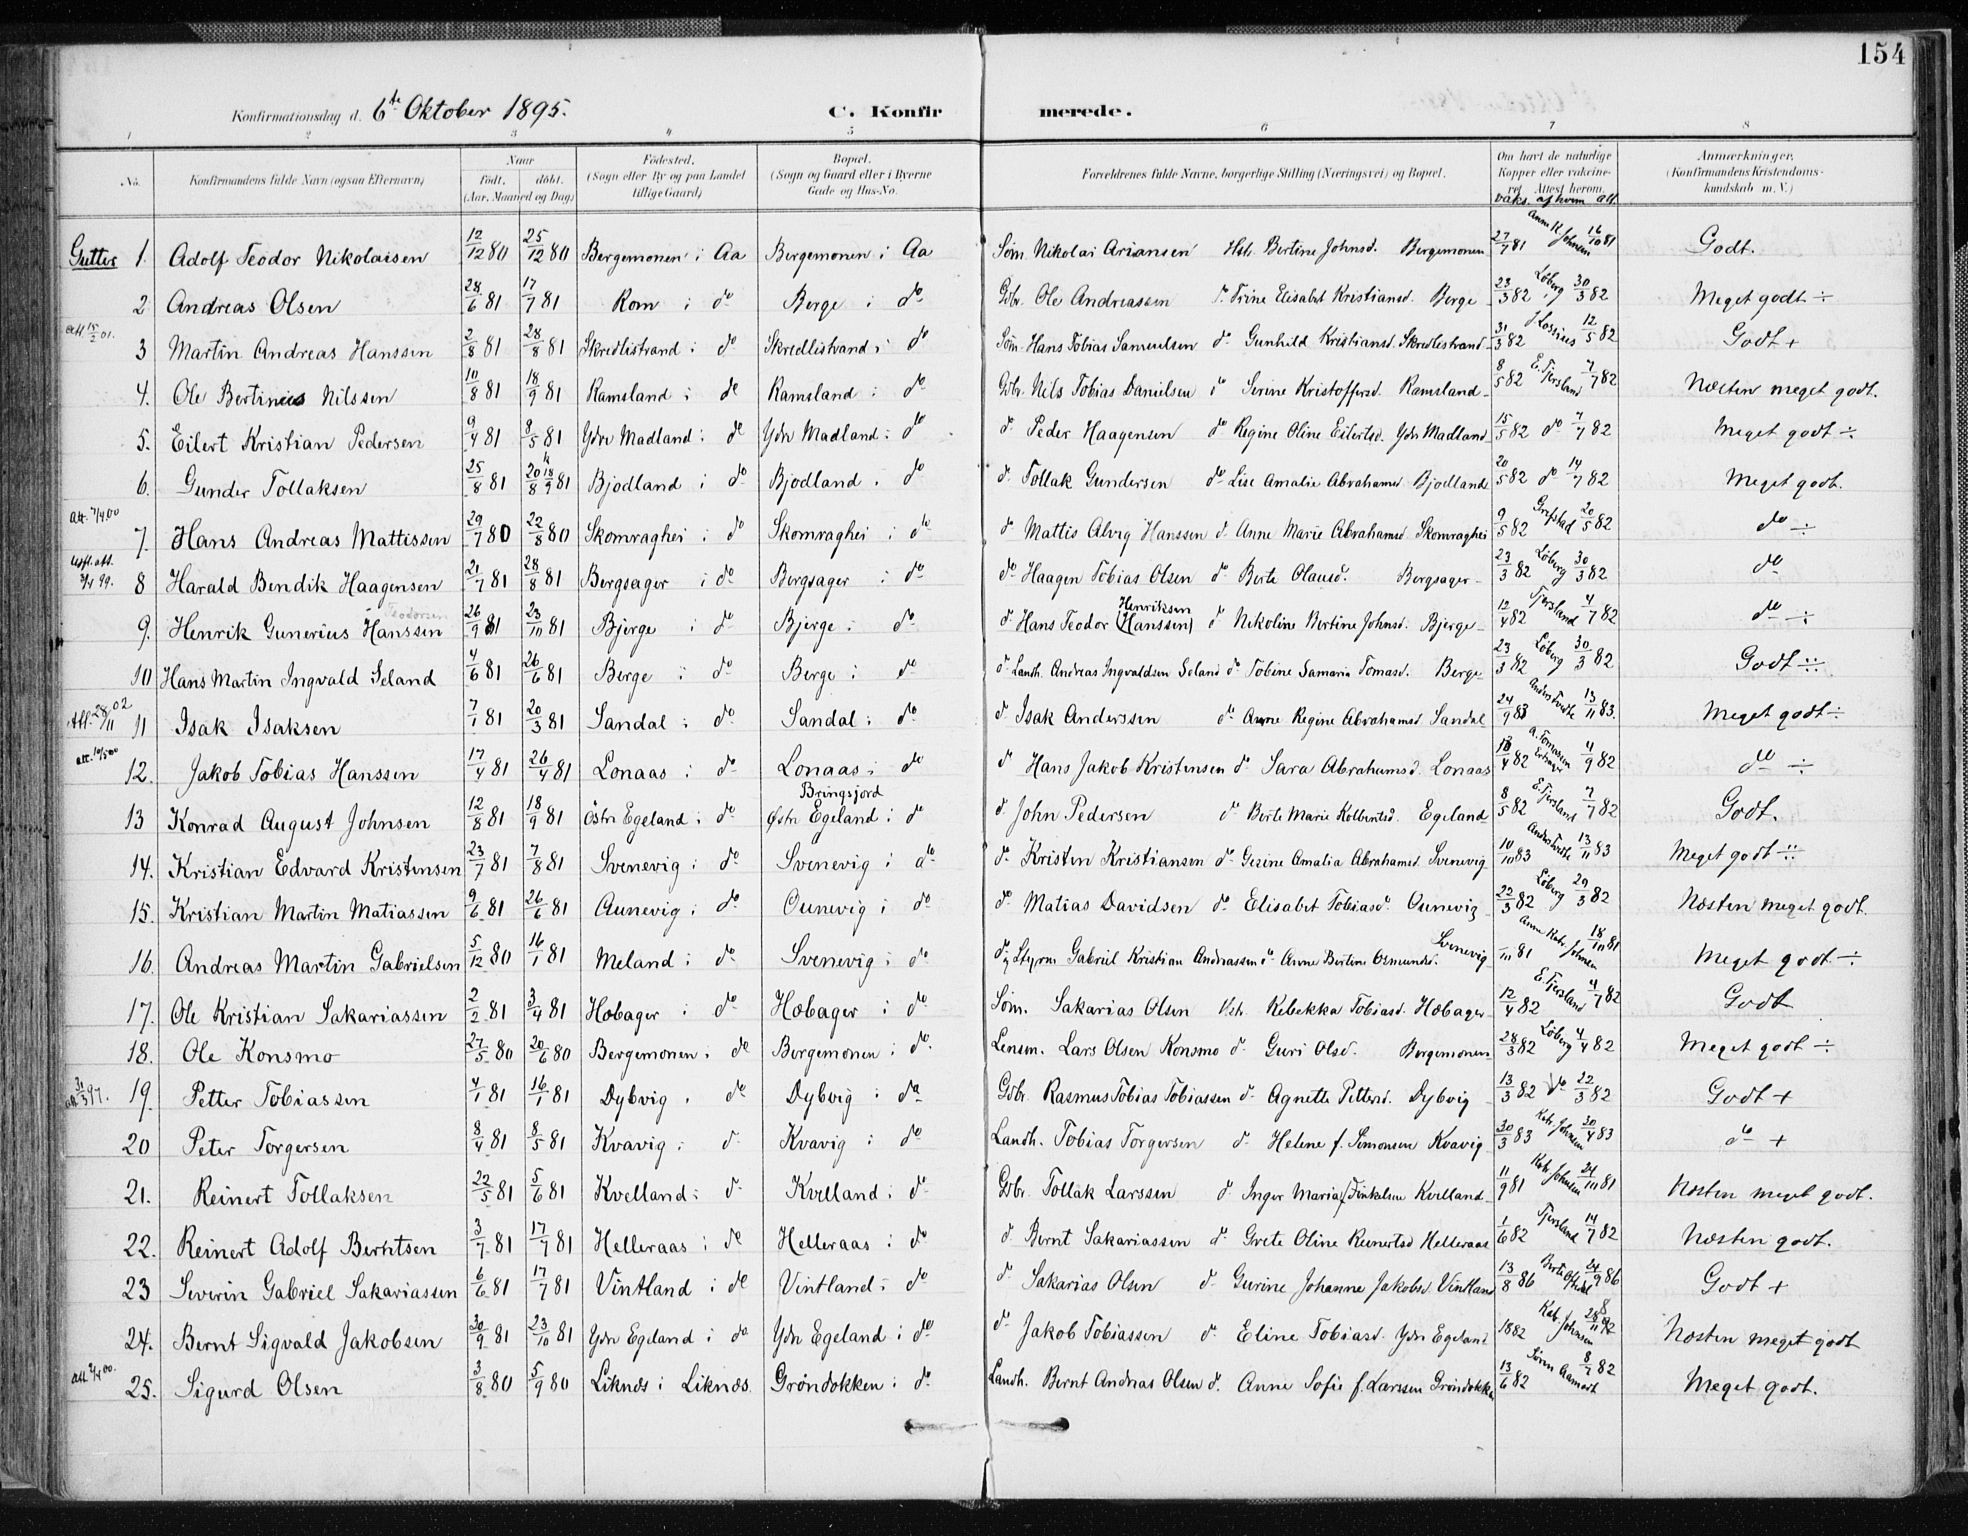 154
Konfirmationsdag d. 6te Oktober 1895. C. Konfirmerede.
1 2 3 4 5 6 7 8
No. Konfirmandens fulde Navn (ogsaa Efternavn) Naar Født, døbt. (Aar, Maaned og Dag) Fødested. (Sogn eller By og paa Landet tillige Gaard) Bopæl. (Sogn og Gaard eller i Byerne Gade og Hus-No. Forældrenes fulde Navne, borgerlige Stilling (Næringsvei) og Bopæl. Om havt de naturlige Kopper eller vakcineret. Attest herom. Anmærkninger. (Konfirmandens Kristendomskundskab m. V.)
vaks. af hvem att.
Gutter 1. Adolf Teodor Nikolaisen 12/12 80 25/12 80 Bergemonen i Aa Bergemonen i Aa Søm. Nikolai Ariansen Hstr. Bertine Johnsd. Bergemonen 27/7 81 Johnsen 16/10 81 Godt.
2 Andreas Olsen 28/6 81 17/7 81 Rom i do Berge i do Gdbr. Ole Andreassen do Trine Elisabet Kristiansd. Berge 23/3 82 Löberg 30/3 82 Meget godt ÷
att 15/2 01. 3 Martin Andreas Hanssen 2/8 81 28/8 81 Skredlistrand i do Skredlistrand i do Søm. Hans Tobias Samuelsen do Gunhild Kristiansd. Skredlistrand 31/3 82 J Lossius 12/5 82 Godt +
4. Ole Bertinius Nilssen 10/8 81 18/9 81 Ramsland i do Ramsland i do Gdbr. Nils Tobias Danielsen do Serine Kristoffersd. Ramsland 8/5 82 E. Fjersland 7/7 82 Næsten meget godt.
5. Eilert Kristian Pedersen 9/4 81 8/5 81 Ydre Madland i do Ydre Madland i do do Peder Haagensen do Regine Oline Eilertsd. Ydre Madland 15/5 82 do 7/7 82 Meget godt ÷
6. Gunder Tollaksen 25/8 81 20/8 18/9 81 Bjodland i do Bjodland i do do Tollak Gundersen do Lise Amalie Abrahamsd Bjodland 20/5 82 do 14/7 82 Meget godt.
att. 7/4 00 7. Hans Andreas Mattissen 29/7 80 22/8 80 Skomraghei i do Skomraghei i do do Mattis Alvig Hanssen do Anne Marie Abrahamsd Skomraghei 9/5 82 Grefstad 20/5 82 do ÷
att. 99. 8 Harald Bendik Haagensen 21/7 81 28/8 81 Bergsager i do Bergsager i do do Haagen Tobias Olsen do Berte Olausd. Bergsager 23/3 82 Löberg 30/3 82 do
9. Henrik Gunerius Hanssen Teodorsen 26/9 81 23/10 81 Bjerge i do Bjerge i do do Hans Teodor Henriksen (Hanssen) do Nikoline Bertine Johnsd. Bjerge 12/4 82 Fjersland 4/7 82 do ÷
10 Hans Martin Ingvald Seland 4/6 81 26/6 81 Berge i do Berge i do do Landh. Andreas Ingvaldsen Seland do Tobine Samaria Tomasd. Berge 23/3 82 Löberg 30/3 82 Godt ÷
Att. 28/11 02 11 Isak Isaksen 7/1 81 20/3 81 Sandal i do Sandal i do do Isak Anderssen do Anne Regine Abrahamsd Sandal 24/9 83 13/11 83. Meget godt ÷
att. 10/5 00 12. Jakob Tobias Hanssen 17/4 81 26/4 81 Lonaas i do Lonaas i do do Hans Jakob Kristensen do Sara Abrahamsd. Lonaas 18/4 82 A. Tomassen 4/9 82 do ÷
13 Konrad August Johnsen 12/8 81 18/9 81 Östre Egeland i do Bringsjord Østre Egeland i do do John Pedersen do Berte Marie Kolbentsd. Egeland 8/5 82 E. Fjersland 7/7 82 Godt.
14. Kristian Edvard Kristensen 23/7 81 7/8 81 Svenevig i do Svenevig i do do Kristen Kristiansen do Gesine Amalia Abrahamsd Svenevig 10/10 83 13/11 83 Meget godt ÷
15. Kristian Martin Matiassen 9/6 81 26/6 81 Aunevig i do Ounevig i do do Matias Davidsen do Elisabet Tobiasd. Ounevig 22/3 82 Löberg 29/3 82 Næsten meget godt.
16. Andreas Martin Gabrielsen 5/12 80 16/1 81 Meland i do Svenevig i do do og Styrm Gabriel Kristian Andreassen do Anne Bertine Osmunds. Svenevig 81 Anne Katr. Johnsen 18/10 81 Meget godt ÷
17. Ole Kristian Sakariassen 2/2 81 3/4 81 Høbager i do Høbager i do Søm. Sakarias Olsen Hstr. Rebekka Tobiasd. Høbager 12/4 82 E. Fjersland 4/7 82 Godt
18. Ole Konsmo 27/5 80 20/6 80 Bergemonen i do Bergemonen i do. Lensm. Lars Olsen Konsmo do Guri Olsd. Bergemonen 28/3 82 Löberg 4/4 82 Meget godt ÷
att 31/3 97. 19. Petter Tobiassen 4/1 81 16/1 81 Dybvig i do Dybvig i do Gdbr. Rasmus Tobias Tobiassen do Agnette Pettersd. Dybvig 13/3 82 do 22/3 82 Godt +
20 Peter Torgersen 8/4 81 8/5 81 Kvavig i do Kvavig i do Landh. Tobias Torgersen do Helene f. Simonsen Kvavig 30/3 83 Katr. Johnsen 30/4 83 do +
21. Reinert Tollaksen 22/5 81 5/6 81 Kvelland i do Kvelland i do Gdbr. Tollak Larssen do Inger Maria Tinkelsen Kvelland 11/9 81 Katr. Johnsen 24/11 81 Næsten meget godt.
22. Reinert Adolf Berntsen 3/7 81 17/7 81 Helleraas i do Helleraas i do do Bernt Sakariassen do Grete Oline Reinertsd Helleraas 1/6 82 Fjersland 14/7 82 Næsten godt.
23 Severin Gabriel Sakariassen 6/6 81 17/7 81 Vintland i do Vintland i do do Sakarias Olsen do Gurine Johanne Jakobsd. Vintland 13/8 86 24/9 86 Godt +
24. Bernt Sigvald Jakobsen 30/9 81 23/10 81 Ydre Egeland i do Ydre Egeland i do do Jakob Tobiassen do Eline Tobiasd. Ydre Egeland 1882 Katr. Johnsen Næsten meget godt
att 00. 25. Sigurd Olsen 3/8 80 5/9 80 Liknes i Liknæs Grøndokken i do Landh. Bernt Andreas Olsen do. Anne Sofie f. Larssen Grøndokken 13/6 82 Sören Aamodt 8/7 82 Meget godt.